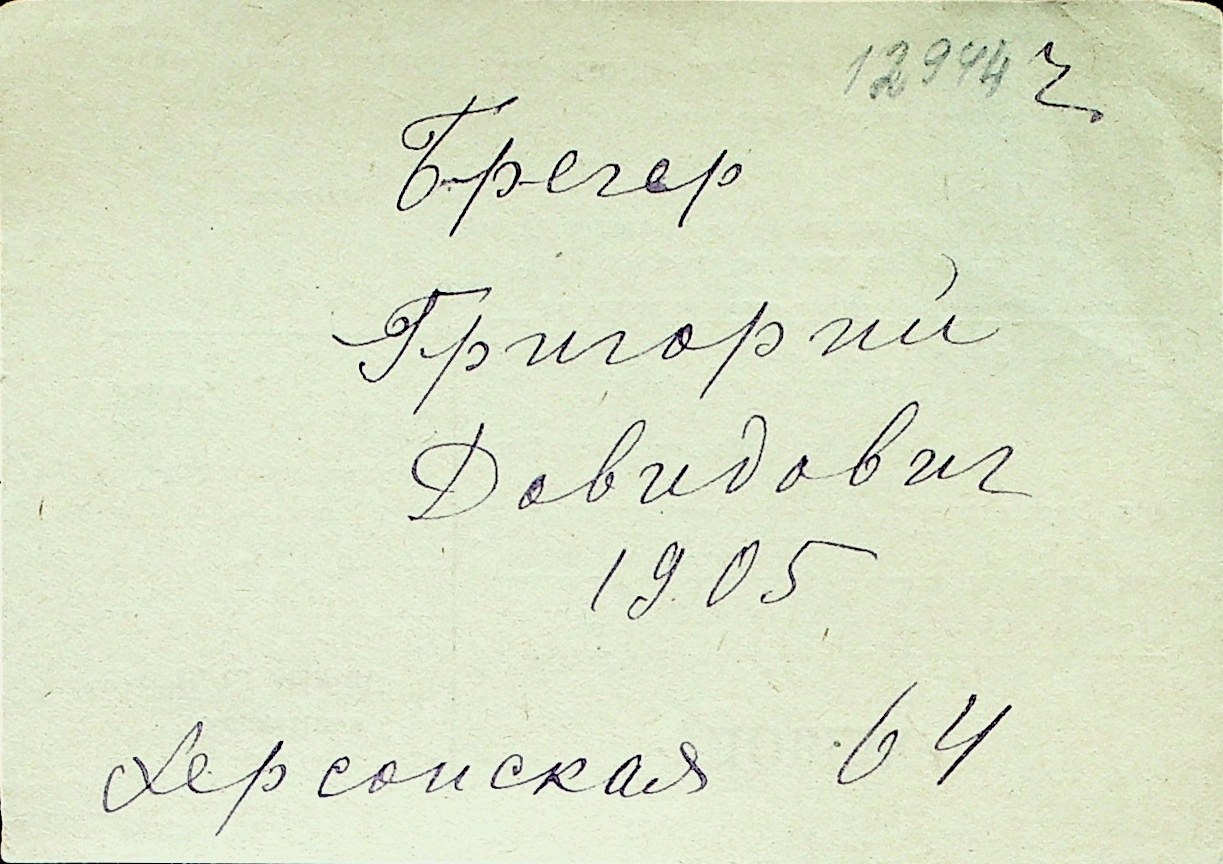 12944 ч
Брегер
Григорий
Довидович
1905
Херсонская 64